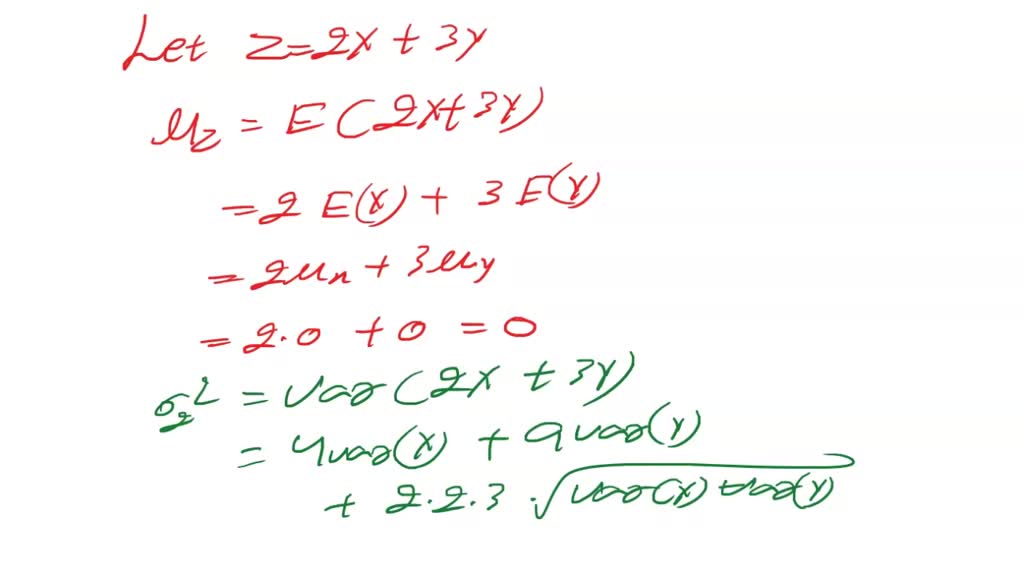 Let Z=2X + 3Y
μz = E(2X+3Y)
=2 E(X) + 3 E(Y)
=2μx + 3μy
= 2·0 + 0 = 0
σz² = Var(2X + 3Y)
= 4var(X) + 9var(Y)
+ 2·2·3 ·√var(X) var(Y)